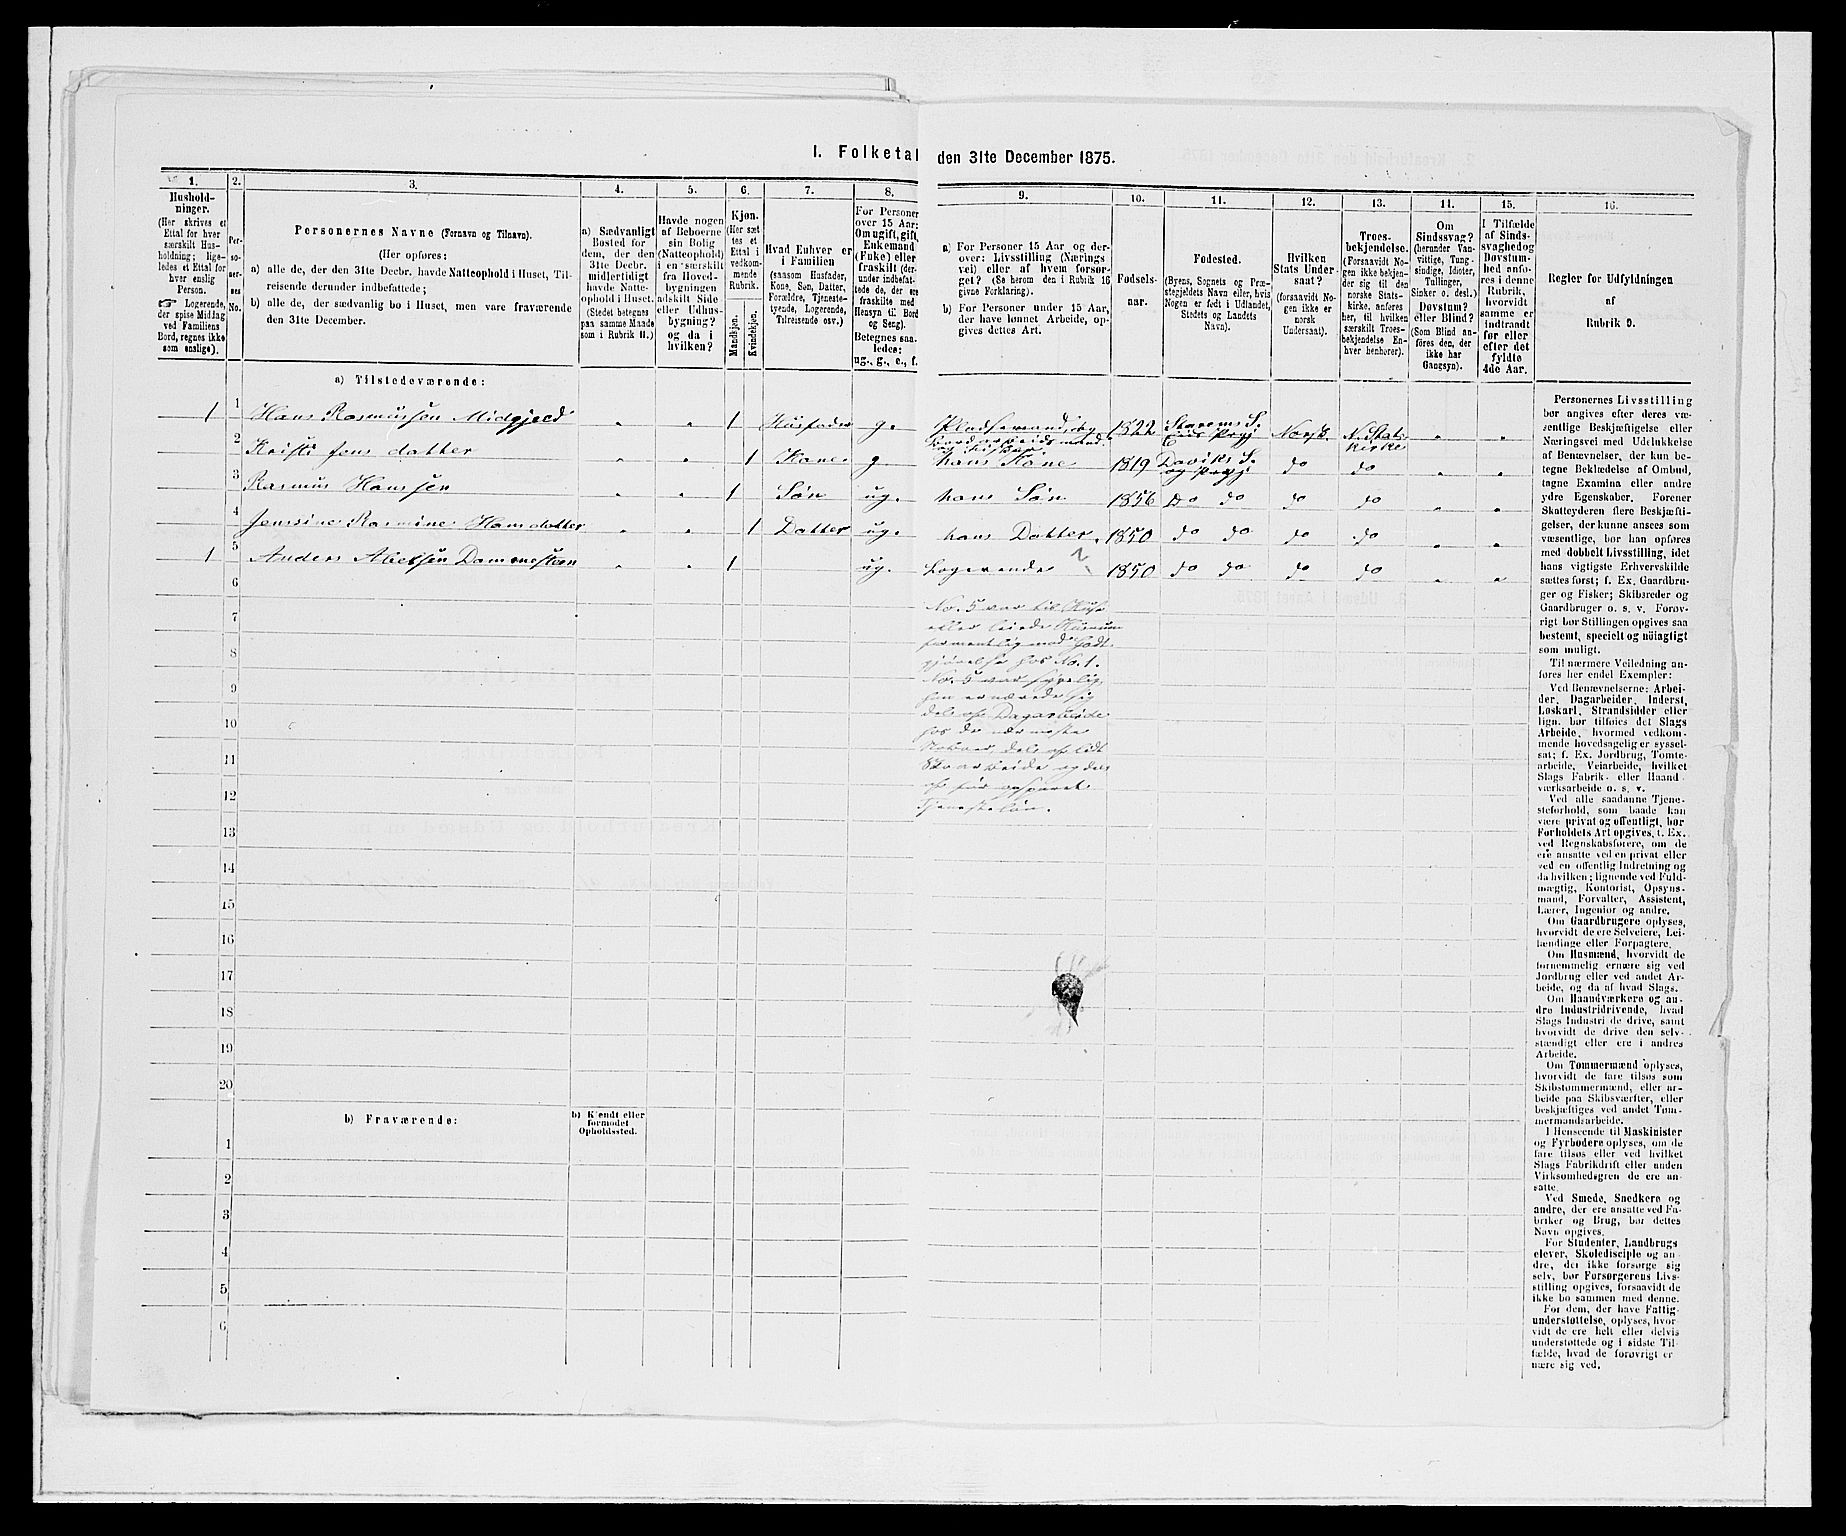 I. Folketal den 31te December 1875.
1.
Hushold-
ninger.
(Her skrives et
Ettal for hver
særskilt Hus-
holdning; lige-
ledes et Ettal for
hver enslig
Person.
☞ Logerende,
der spise Middag
ved Familiens
Bord, regnes ikke
som enslige).
2.
Per-
so-
ner-
nes
No.
3.
Personernes Navne (Fornavn og Tilnavn).
(Her opføres:
a) alle de, der den 31te Decbr. havde Natteophold i Huset, Til-
reisende derunder indbefattede;
b) alle de, der sædvanlig bo i Huset, men vare fraværende
den 31te December.
4.
a) Sædvanligt
Bosted for
dem, der den
31te Decbr.
midlertidigt
havde Natte-
ophold i Huset.
(Stedet betegnes
paa samme Maade
som i Rubrik 11.)
5.
Havde nogen
af Beboerne
sin Bolig
(Natteophold)
i en særskilt
fra Hoved-
bygningen
adskilt Side
eller Udhus-
bygning?
og da i
hvilken?
6.
Kjøn.
(Her sæt
tes et
Ettal i
vedkom-
mende
Rubrik.
Mandkjøn.
Kvindekjøn.
7.
Hvad Enhver er
i Familien
(saasom Husfader,
Kone, Søn, Datter,
Forældre, Tjeneste-
tyende, Logerende,
Tilreisende osv.)
8.
For Personer
over 15 Aar:
Om ugift, gift,
Enkemand
(Enke) eller
fraskilt (der-
under indbefat-
tede de, der ere
fraskilte med
Hensyn til Bord
og Seng).
Betegnes saa-
ledes:
ug., g., e., f.
9.
a) For Personer 15 Aar og der-
over: Livsstilling (Nærings
vei) eller af hvem forsør-
get? (Se herom den i Rubrik 16
givne Forklaring).
b) For Personer under 15 Aar,
der have lønnet Arbeide, op-
gives dettes Art.
10.
Fødsels-
aar.
11.
Fødested.
(Byens, Sognets og Præ-
stegjeldets Navn eller, hvis
Nogen er født i Udlandet,
Stedets og Landets
Navn).
12.
Hvilken
Stats Under-
saat?
(forsaavidt No-
gen ikke er
norsk
Undersaat).
13.
Troes-
bekjendelse.
(Forsaavidt No-
gen ikke bekjen-
der sig til den
norske Stats-
kirke, anføres
her, til hvilken
særskilt Troes-
bekjendelse En-
hver henhører).
11.
Om
Sindssvag?
(herunder Van-
vittige, Tung-
sindige, Idioter,
Tullinger,
Sinker o. desl.)
Døvstum?
eller Blind?
(Som Blind an-
føres den, der
ikke har
Gangsyn).
15.
I Tilfælde
af Sinds-
svaghed og
Døvstum-
hed anfø-
res i denne
Rubrik,
hvorvidt
samme er
indtraadt
før eller
efter det
fyldte
4de Aar.
16.
Regler for Udfyldningen
af
Rubrik 9.
a) Tilstedeværende:
1 1 Hans Rasmussen Midgjeld " " 1 Husfader g. Pladsemand, og 1822 Stavems S. Norsk N. Stats- " "
kirke
2 Kristi Jens datter " " 1 Kone g hans Kone 1819 Daviks S. do do " "
og Prgj
3 Rasmus Hanssen " " 1 Søn ug. hans Søn 1856 Do do do do " "
4 Jenssine Rasmine Hansdatter " " 1 Datter ug. hans Datter. 1850 do do do do " "
1 5 Anders Abelsen Dammesteen " " 1 ug. Logerende 1850 do do do do " "
No. 5 var til Huse
eller leiede Husrum
formentlig mod Godt
gjørelse hos No. 1.
No. 5 var
han ernærede sig
dels af Dagarbeide
hos de nærmeste
Naboer, dels af lidt
arbeide og dels
af før opsparet
Tjenesteløn.
6
7
8
9
10
11
12
13
14
15
16
17
18
19
20
b) Fraværende:
b) Kjendt eller
formodet
Opholdssted.
1
2
3
4
5
6
Personernes Livsstilling
bør angives efter deres væ-
sentlige Beskjæftigelse eller
Næringsvei med Udelukkelse
af Benævnelser, der kun be-
tegne Beklædelse af Ombud,
tagne Examina eller andre
ydre Egenskaber. Forener
Skatteyderen flere Beskjæfti-
gelser, der kunne ansees som
væsentlige, bør han opføres
med dobbelt Livsstilling, idet
hans vigtigste Erhvervskilde
sættes først; f. Ex. Gaardbru-
ger og Fisker; Skibsreder og
Gaardbruger o. s. v. Forøv-
rigt bør Stillingen opgives saa
bestemt, specielt og nöiagtigt
som muligt.
Til nærmere Veiledning an-
føres her endel Exempler:
Ved Benævnelserne: Arbei-
der, Dagarbeider, Inderst,
Løskarl, Strandsidder eller
lign. bør tilføies det Slags
Arbeide, hvormed vedkom-
mende hovedsagelig er syssel-
sat; f. Ex. Jordbrug, Tomte-
arbeide, Veiarbeide, hvilket
Slags Fabrik- eller Haand
værksarbeide o. s. v.
Ved alle saadanne Tjene-
steforhold, som baade kan
være privat og offentligt, bør
Forholdets Art opgives, t. Ex.
ved Regnskabsførere, om de
ere ansatte ved en privat eller
ved en offentlig Indretning og
da hvilken; lignende ved Fuld-
mægtig, Kontorist, Opsyns-
mand, Forvalter, Assistent,
Lærer, Ingeniør og andre.
Om Gaardbrugere oplyses,
hvorvidt de ere Selveiere, Lei-
lændinge eller Forpagtere.
Om Husmænd, hvorvidt de
fornemmelig ernære sig ved
Jordbrug eller ved andet Ar-
beide, og da af hvad Slags.
Om Haandværkere og an-
dre Industridrivende, hvad
Slags Industri de drive, samt
hvorvidt de drive den selv-
stændigt eller ere i andres
Arbeide.
Om Tømmermænd oplyses,
hvorvidt de fare tilsøs som
Skibstømmermænd, eller ar-
beide paa Skibsværfter, eller
beskjæftiges ved andet Tøm-
mermandsarbeide.
I Henseende til Maskinister
og Fyrbødere oplyses, om de
fare tilsøs eller ved hvilket
Slags Fabrikdrift eller anden
Virksomhedsgren de ere an-
satte.
Ved Smede, Snedkere og
andre, der ere ansatte ved Fa-
briker og Brug, bør dettes
Navn opgives.
For Studenter, Landbrugs
elever, Skoledisciple og an
dre, der ikke forsørge sig
selv, bør Forsørgerens Livs-
stilling opgives, forsaavidt de
ikke bo sammen med denne.
For dem, der have Fattig-
understøttelse, oplyses, hvor-
vidt de ere helt eller delvis
understøttede og i sidste Til-
fælde, hvad de forøvrigt er
nære sig ved.